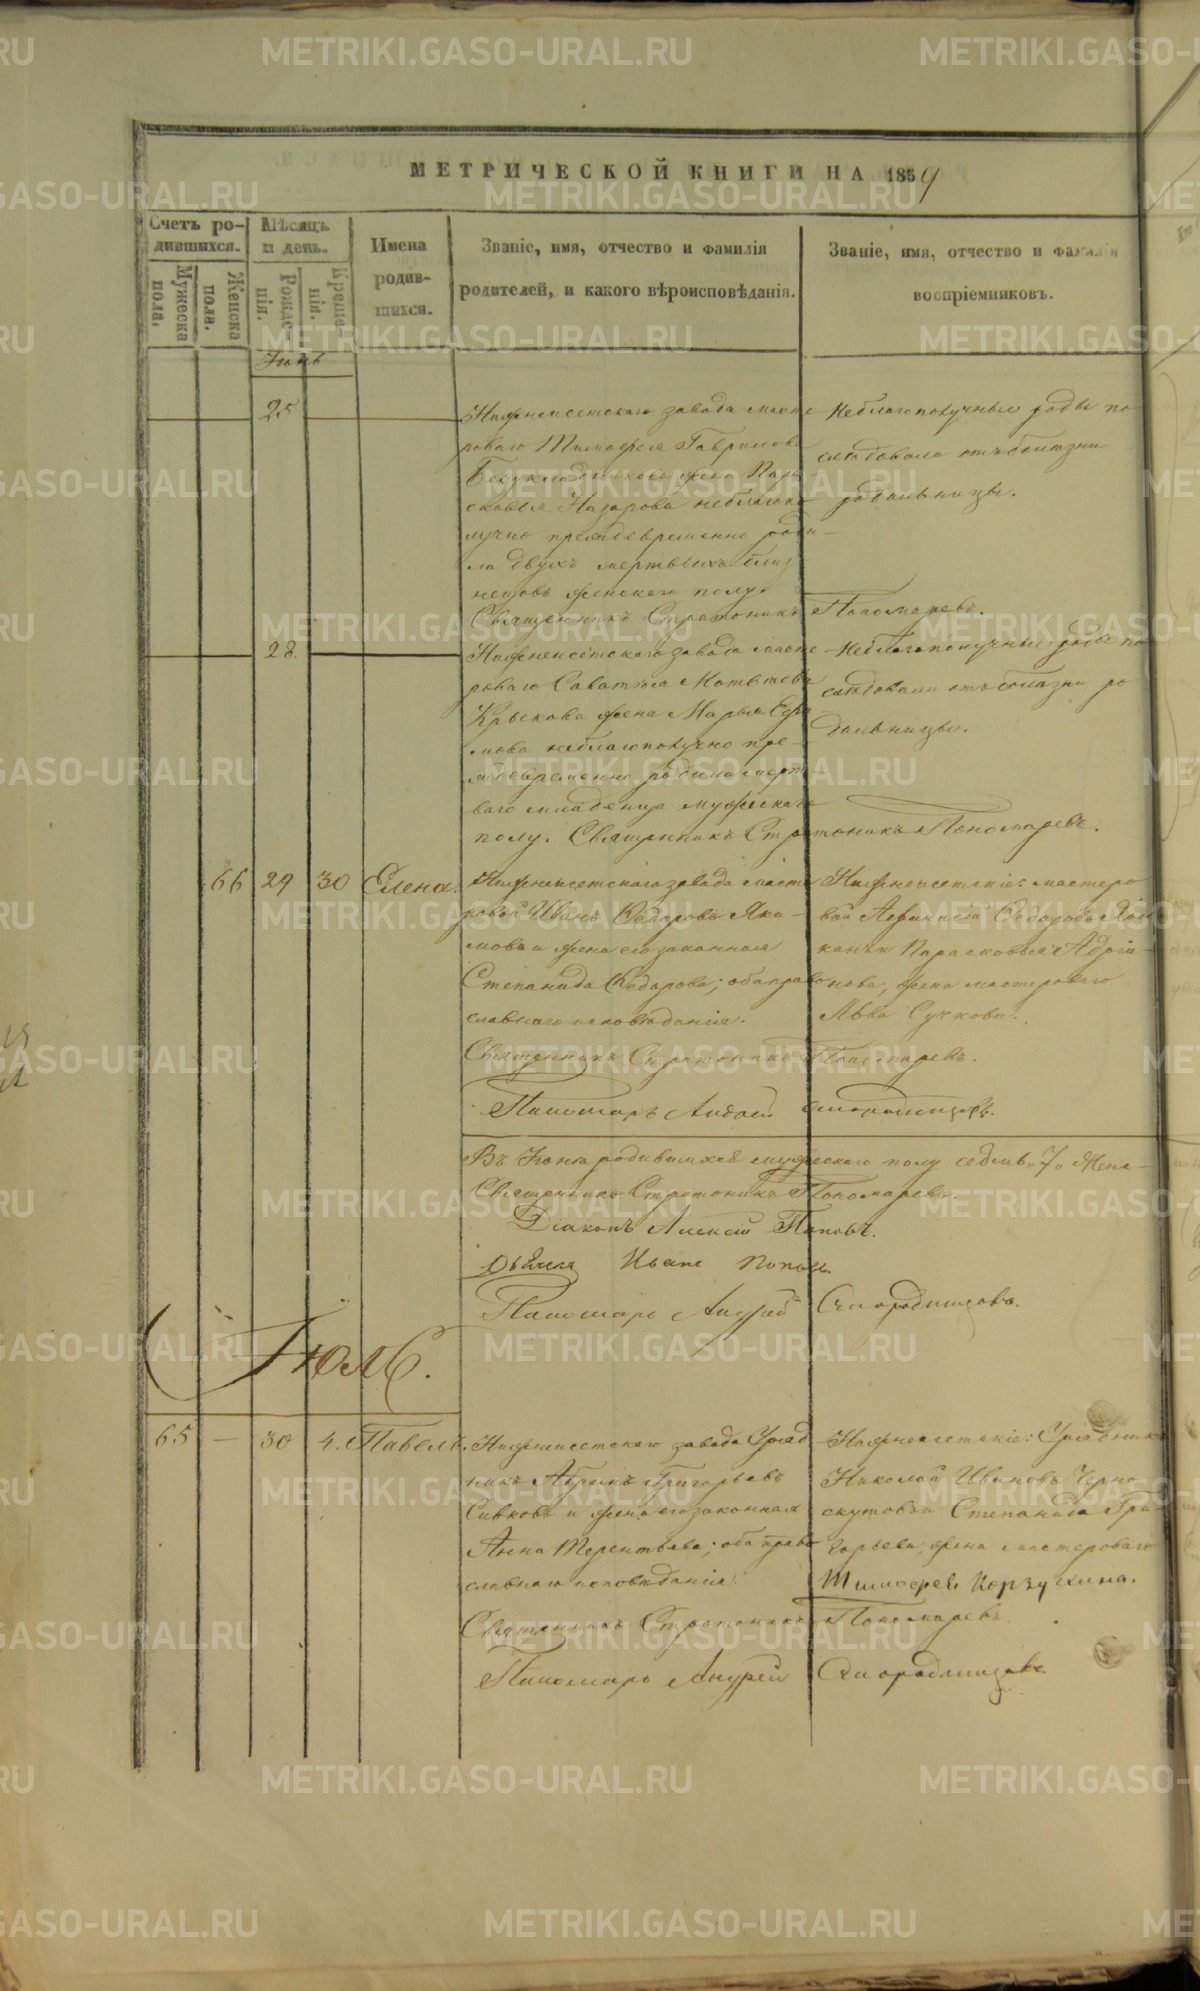 МЕТРИЧЕСКОЙ КНИГИ НА 1859
Счетъ ро-
дившихся.
Мужеска
пола.
Женска
пола.
Мѣсяцъ
и день.
Рожде-
нія.
Креще-
нія.
Имена
родив-
шихся.
Званіе, имя, отчество и фамилія
родителей, и какого вѣроисповѣданія.
Званіе, имя, отчество и фамилія
воспріемниковъ.
Іюнь
25
Нижнеисетскаго завода масте
роваго Тимофея Гаврилова
жена Пара
сковья Назарова неблагопо
лучно преждевременно роди
ла двухъ мертвыхъ близ
нецовъ женскаго полу.
Священникъ Стратоникъ Пономаревъ.
Неблагополучные роды по
слѣдовали отъ болѣзни
родильницы.
28
Нижнеисетскаго завода масте
роваго Саватѣя Матвѣева
Крыскова жена Марья Ефи
мова неблагополучно пре-
ждевременно родила мерт
ваго младенца мужескаго
полу. Священникъ Стратоникъ Пономаревъ.
Неблагополучные роды по
слѣдовали отъ болѣзни ро
дильницы.
66 29 30 Елена.
Нижнеисетскаго завода масте
ровой Иванъ Ѳедоровъ Яки-
мовъ и жена его законная
Степанида Ѳедорова; оба право
славнаго исповѣданія.
Священникъ Стратоникъ Пономаревъ.
Пономарь Андрей Смородинцовъ.
Нижнеисетскіе: мастеро
вой Ѳедоровъ
Парасковья Адріа-
нова, жена мастероваго
Льва Сучкова.
Въ Іюнѣ родившихся мужескаго полу седмь "7" Женс-
Священникъ Стратоникъ Пономаревъ.
Діаконъ Алексій Поповъ.
Иванъ Поповъ
Пономарь Андрей Смородинцовъ.
Іюль.
65 — 30 4. Павелъ.
Нижнеисетскаго завода Уряд
никъ Абрамъ Григорьевъ
Сивковъ и жена его законная
Анна Терентьева; оба право
славнаго исповѣданія.
Священникъ Стратоникъ Пономаревъ.
Пономарь Андрей Смородинцовъ.
Нижнеисетскіе: Урядникъ
Николай Ивановъ Черно
скутовъ и Степанида Гри-
горьева, жена мастероваго
Тимофея Корзухина.